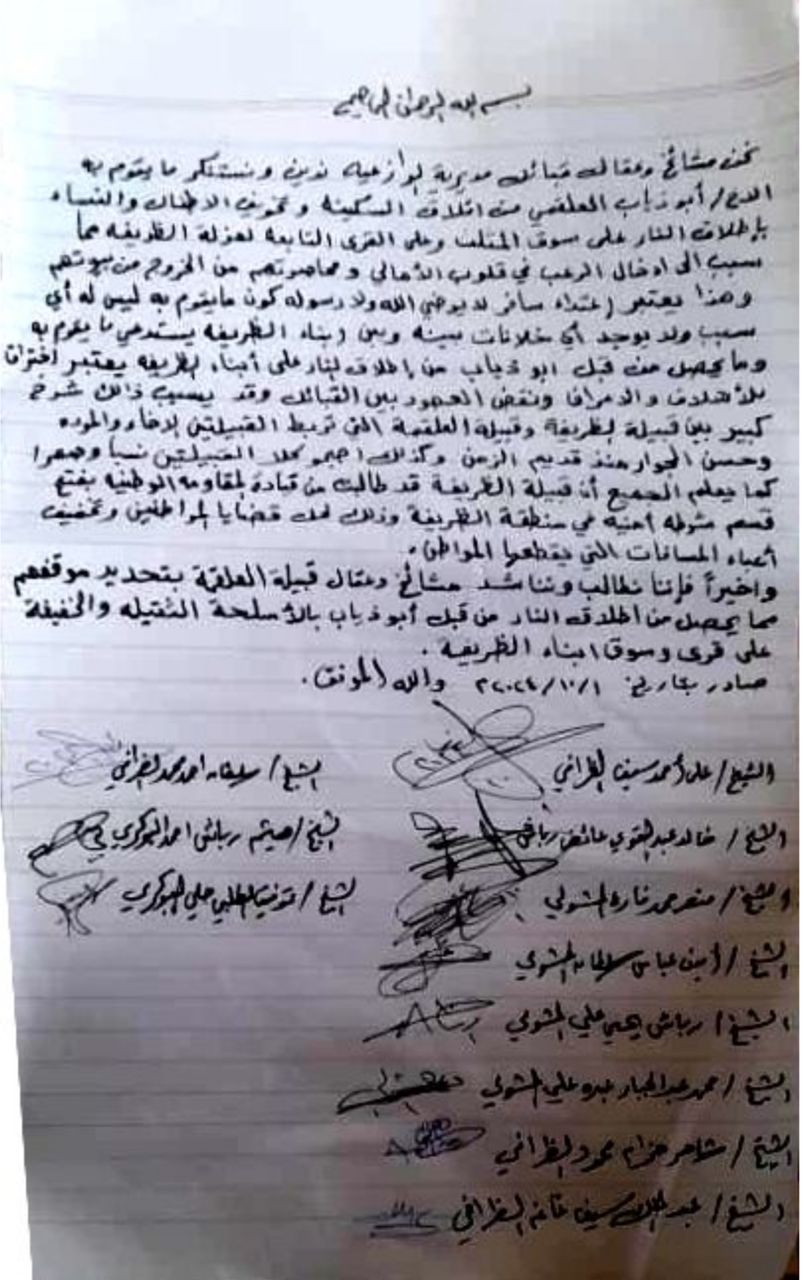 بسم الله الرحمن الرحيم
نحن مشائخ وعقال قبائل مديرية الوازعية ندين ونستنكر ما يقوم به
الاخ/ أبو ذياب العلقمي من اقلاق السكينه وتخويف الاطفال والنساء
بإطلاق النار على سوق المثلث وعلى القرى التابعه لعزلة الظريفه مما
سبب الى ادخال الرعب في قلوب الأهالي ومحاصرتهم من الخروج من بيوتهم
وهذا يعتبر إعتداء سافر لا يرضي الله ولا رسوله كون ما يقوم به ليس له أي
سبب ولا يوجد أي خلافات بينه وبين ابناء الظريفه يستدعي ما يقوم به
وما يحصل من قبل ابو ذياب من إطلاق النار على أبناء الظريفه يعتبر اختراق
للأخلاق والاعراف ونقض العهود بين القبائل وقد يسبب ذالك شرخ
كبير بين قبيلة الظريفة وقبيلة العلقمة التي تربط القبيلتين الإخاء والموده
وحسن الجوار منذ قديم الزمن وكذلك اصبحو كلا القبيلتين نسباً وصهرا
كما يعلم الجميع أن قبيلة الظريفة قد طالبت من قيادة المقاومه الوطنيه بفتح
قسم شرطه أمنيه في منطقة الظريفة وذلك لحل قضايا المواطنين وتخفيف
أعباء المسافات التي يقطعها المواطن.
واخيراً فإننا نطالب ونناشد مشائخ وعقال قبيلة العلقمة بتحديد موقفهم
مما يحصل من اطلاق النار من قبل أبو ذياب بالأسلحة الثقيله والخفيفة
على قرى وسوق ابناء الظريفة.
صادر بتاريخ ٢٠٢٤/١٠/١ والله الموفق.
الشيخ/ علي أحمد سيف الظرافي
الشيخ/ سلطان احمد محمد الظرافي
الشيخ/ خالد عبدالقوي عائض رباش
الشيخ/ هيثم رباش احمد البوكري
الشيخ/ محمد المشولي
الشيخ/ توفيق علي البوكري
الشيخ/ أمين عباس سلطان المشولي
الشيخ/ رباش يحيى علي المشولي
الشيخ/ محمد عبدالجبار عبده علي المشولي
الشيخ/ شاهر حزام محمود الظرافي
الشيخ/ عبدالملك سيف غانم الظرافي